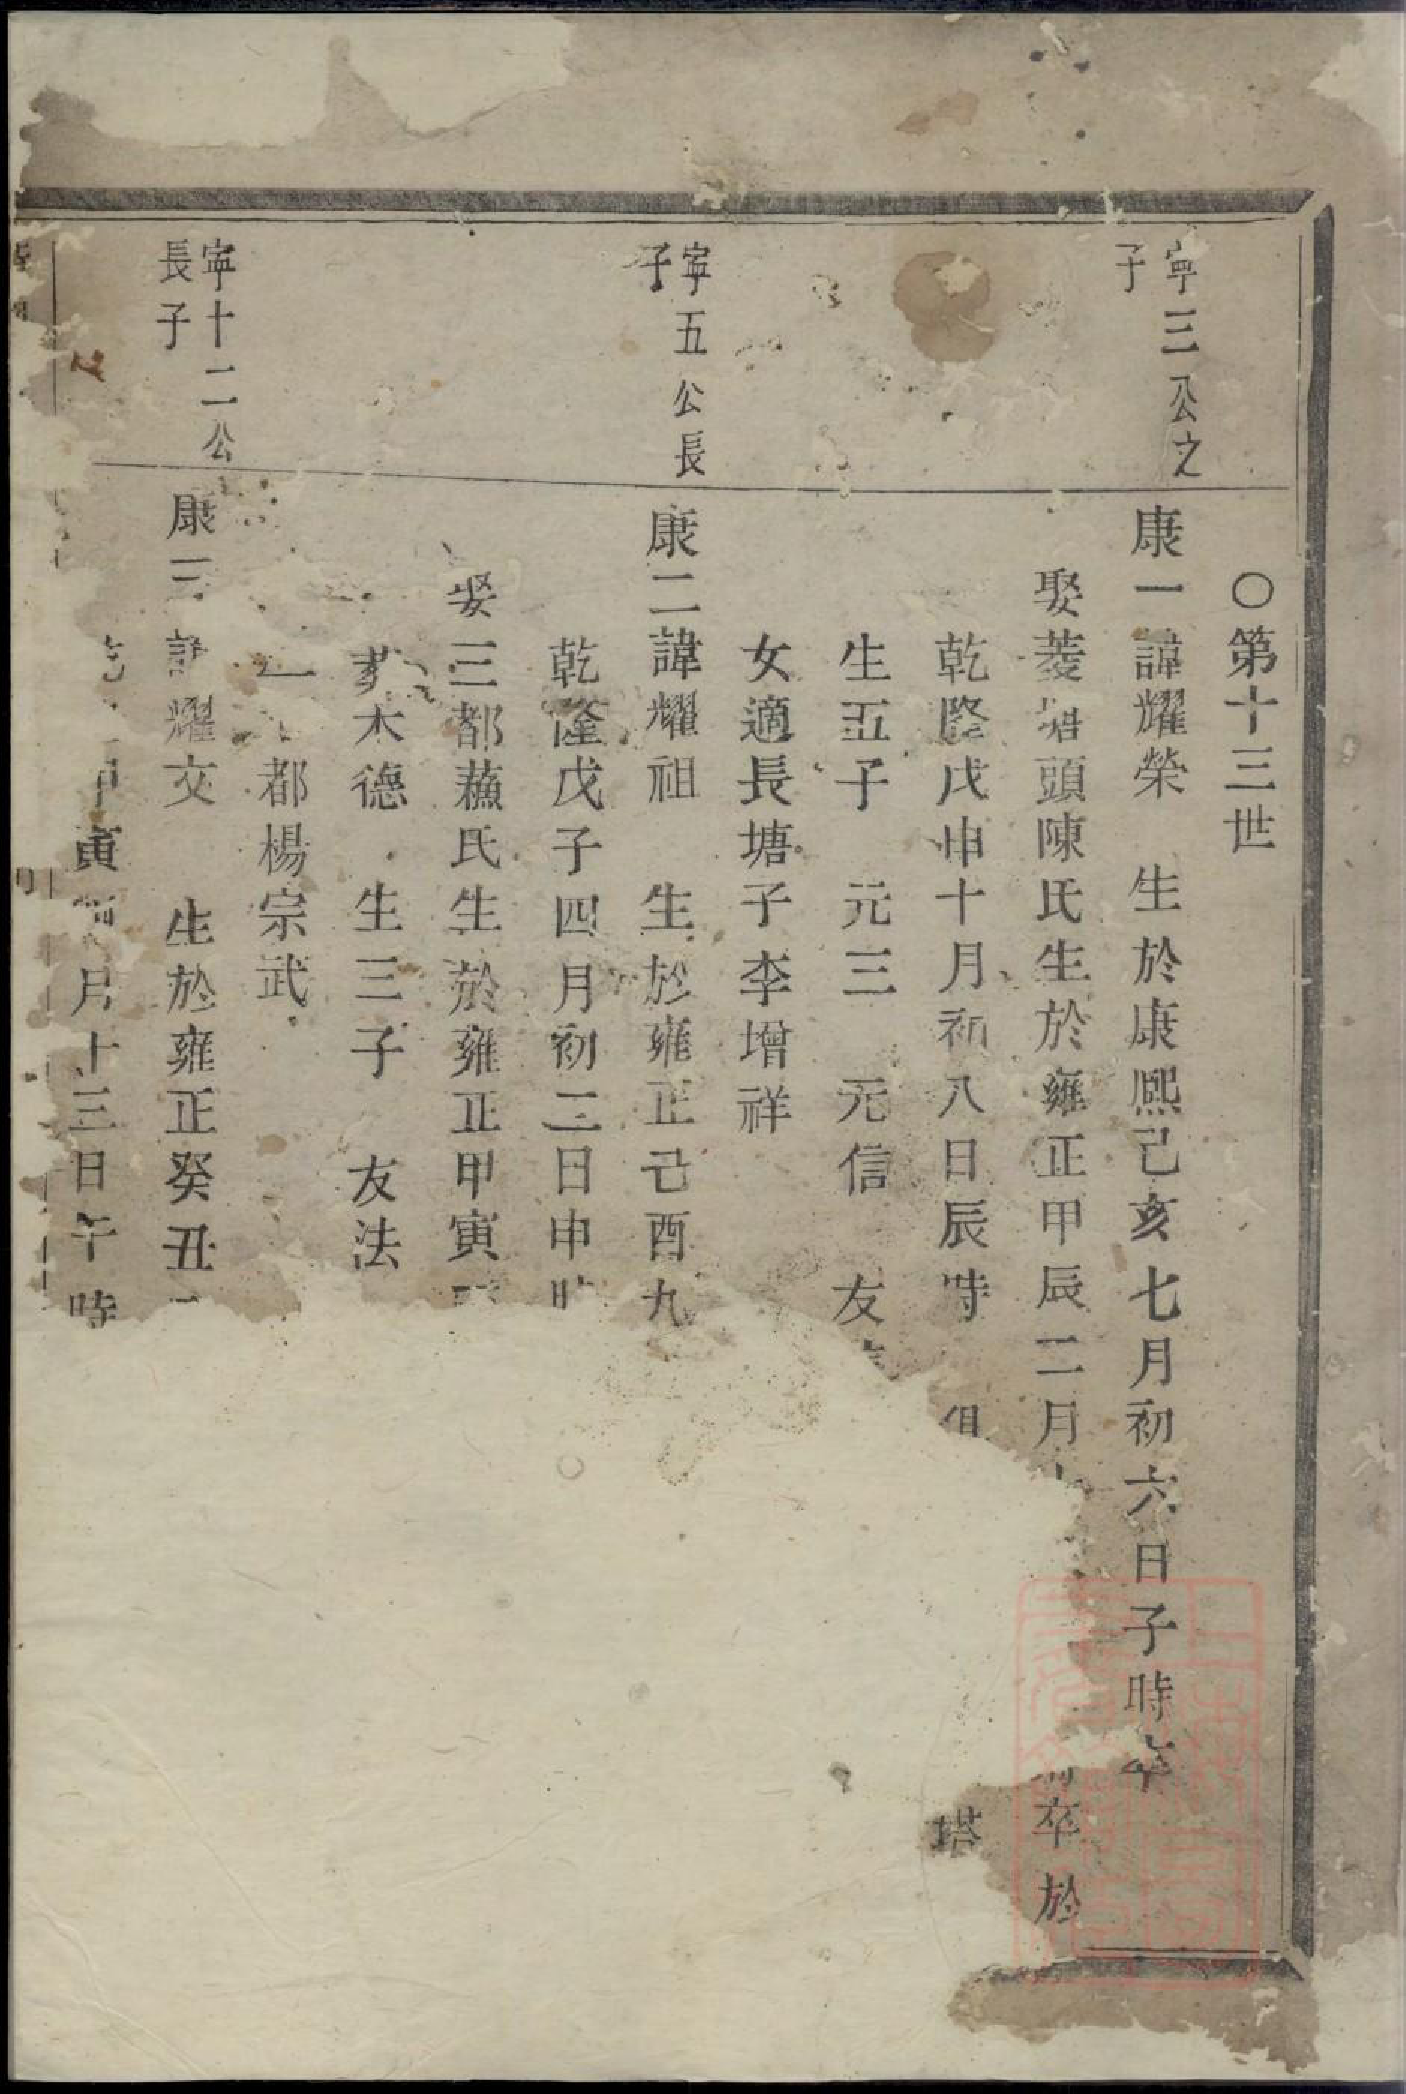 ○第十三世
寧三公之
子
康一諱耀榮　生於康熙己亥七月初六日子時卒
娶菱塘頭陳氏生於雍正甲辰二月　卒於
乾隆戊申十月初八日辰時　塔
生五子　元三　元信　友
女適長塘子李增祥
寧五公長
子
康二諱耀祖　生於雍正己酉九
乾隆戊子四月初二日申時
娶三都蘓氏生於雍正甲寅
木德　生三子　友法
都楊宗武
寧十二公
長子
康三諱耀文　生於雍正癸丑
寅　月十三日午時